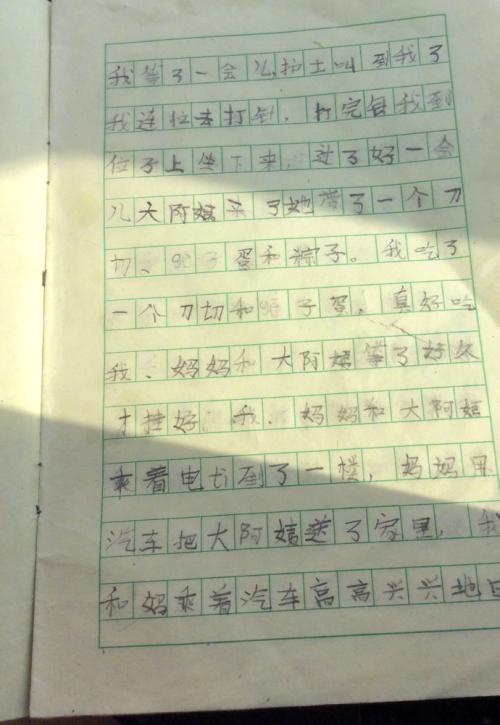 我等了一会儿护士叫到我了
我连忙去打针，打完针我到
位子上坐下来，过了好一会
儿大阿姨来了她带了一个刀
切、子蛋和粽子。我吃了
一个刀切和子蛋，真好吃
我、妈妈和大阿姨等了好久
才挂好，我、妈妈和大阿姨
乘着电，到了一楼，妈妈用
汽车把大阿姨送了家里，我
和妈乘着汽车高高兴兴地回